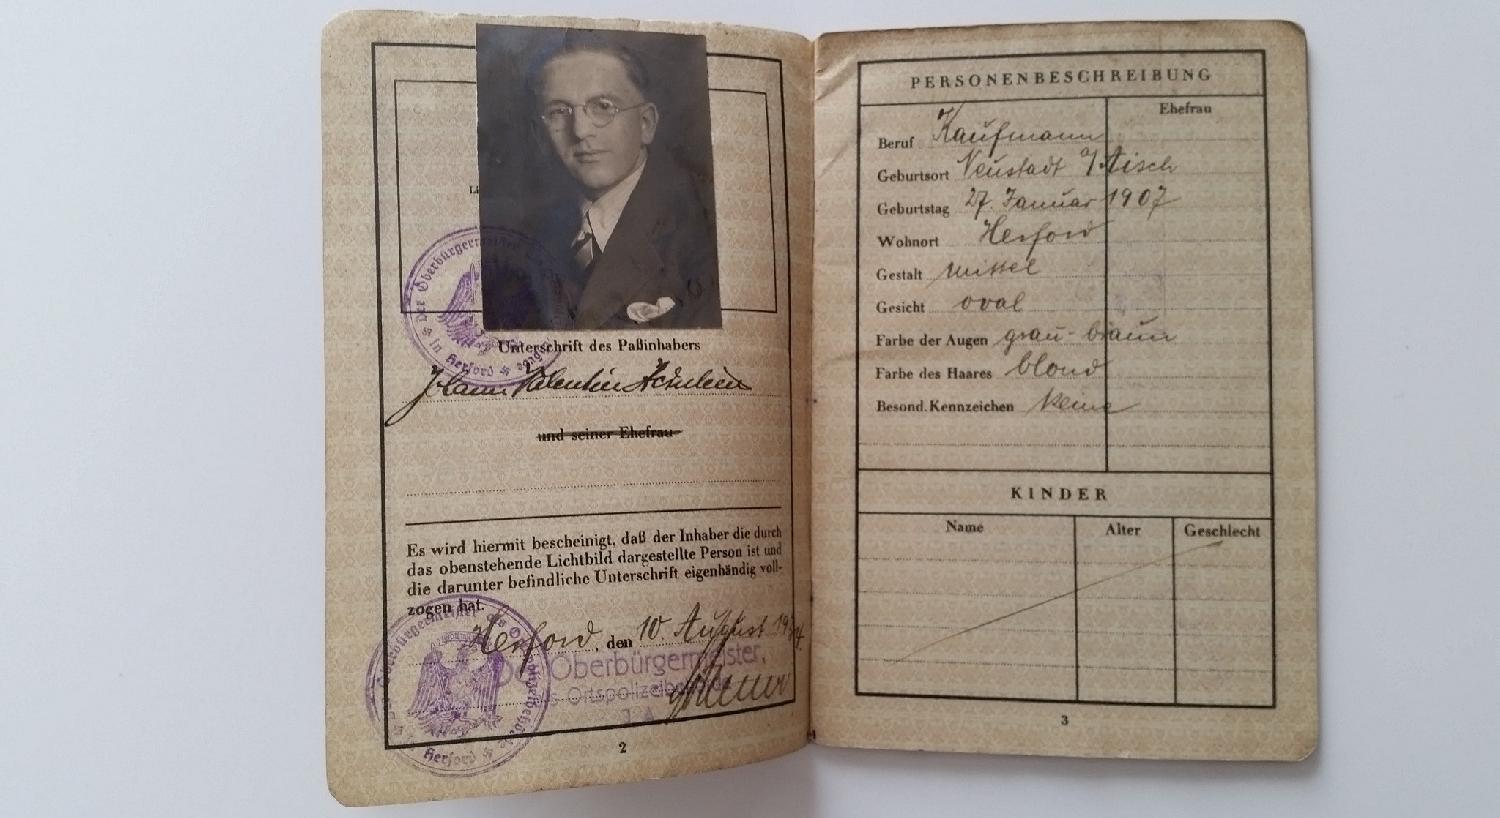 Der Oberbürgermeister
in Herford
Unterschrift des Paßinhabers
Johann Valentin
und seiner Ehefrau
Es wird hiermit bescheinigt, daß der Inhaber die durch
das obenstehende Lichtbild dargestellte Person ist und
die darunter befindliche Unterschrift eigenhändig voll-
zogen hat.
Herford, den 10. August 19
Der Oberbürgermeister,
als Ortspolizeibehörde
I. A.
Oberbürgermeister als Ortspolizeibehörde
Herford
2
PERSONENBESCHREIBUNG
Ehefrau
Beruf Kaufmann
Geburtsort Neustadt a/Aisch
Geburtstag 27. Januar 1907
Wohnort Herford
Gestalt mittel
Gesicht oval
Farbe der Augen grau-braun
Farbe des Haares blond
Besond. Kennzeichen keine
KINDER
Name Alter Geschlecht
3